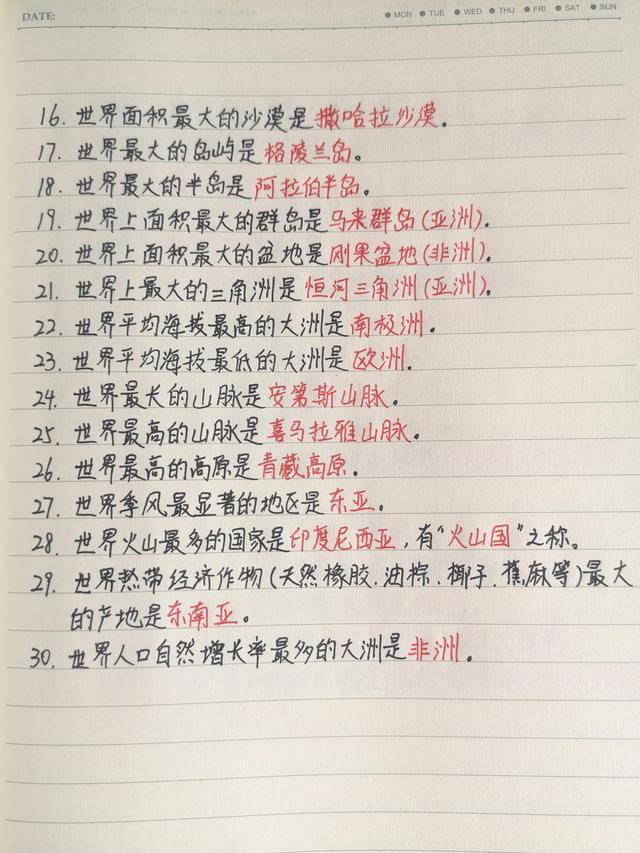 DATE: MON TUE WED THU FRI SAT SUN
16. 世界面积最大的沙漠是撒哈拉沙漠。
17. 世界最大的岛屿是格陵兰岛。
18. 世界最大的半岛是阿拉伯半岛。
19. 世界上面积最大的群岛是马来群岛(亚洲)。
20. 世界上面积最大的盆地是刚果盆地(非洲)。
21. 世界上最大的三角洲是恒河三角洲(亚洲)。
22. 世界平均海拔最高的大洲是南极洲。
23. 世界平均海拔最低的大洲是欧洲。
24. 世界最长的山脉是安第斯山脉。
25. 世界最高的山脉是喜马拉雅山脉。
26. 世界最高的高原是青藏高原。
27. 世界季风最显著的地区是东亚。
28. 世界火山最多的国家是印度尼西亚,有“火山国”之称。
29. 世界热带经济作物(天然橡胶.油棕.椰子.蕉麻等)最大
的产地是东南亚。
30. 世界人口自然增长率最多的大洲是非洲。